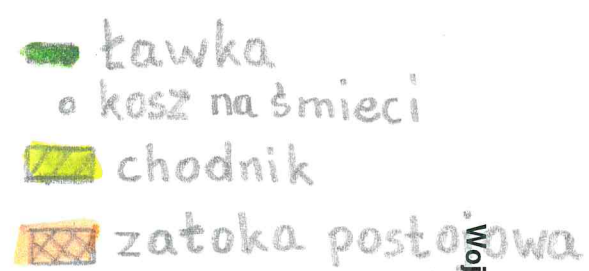 ławka
kosz na śmieci
chodnik
zatoka postojowa
Woj